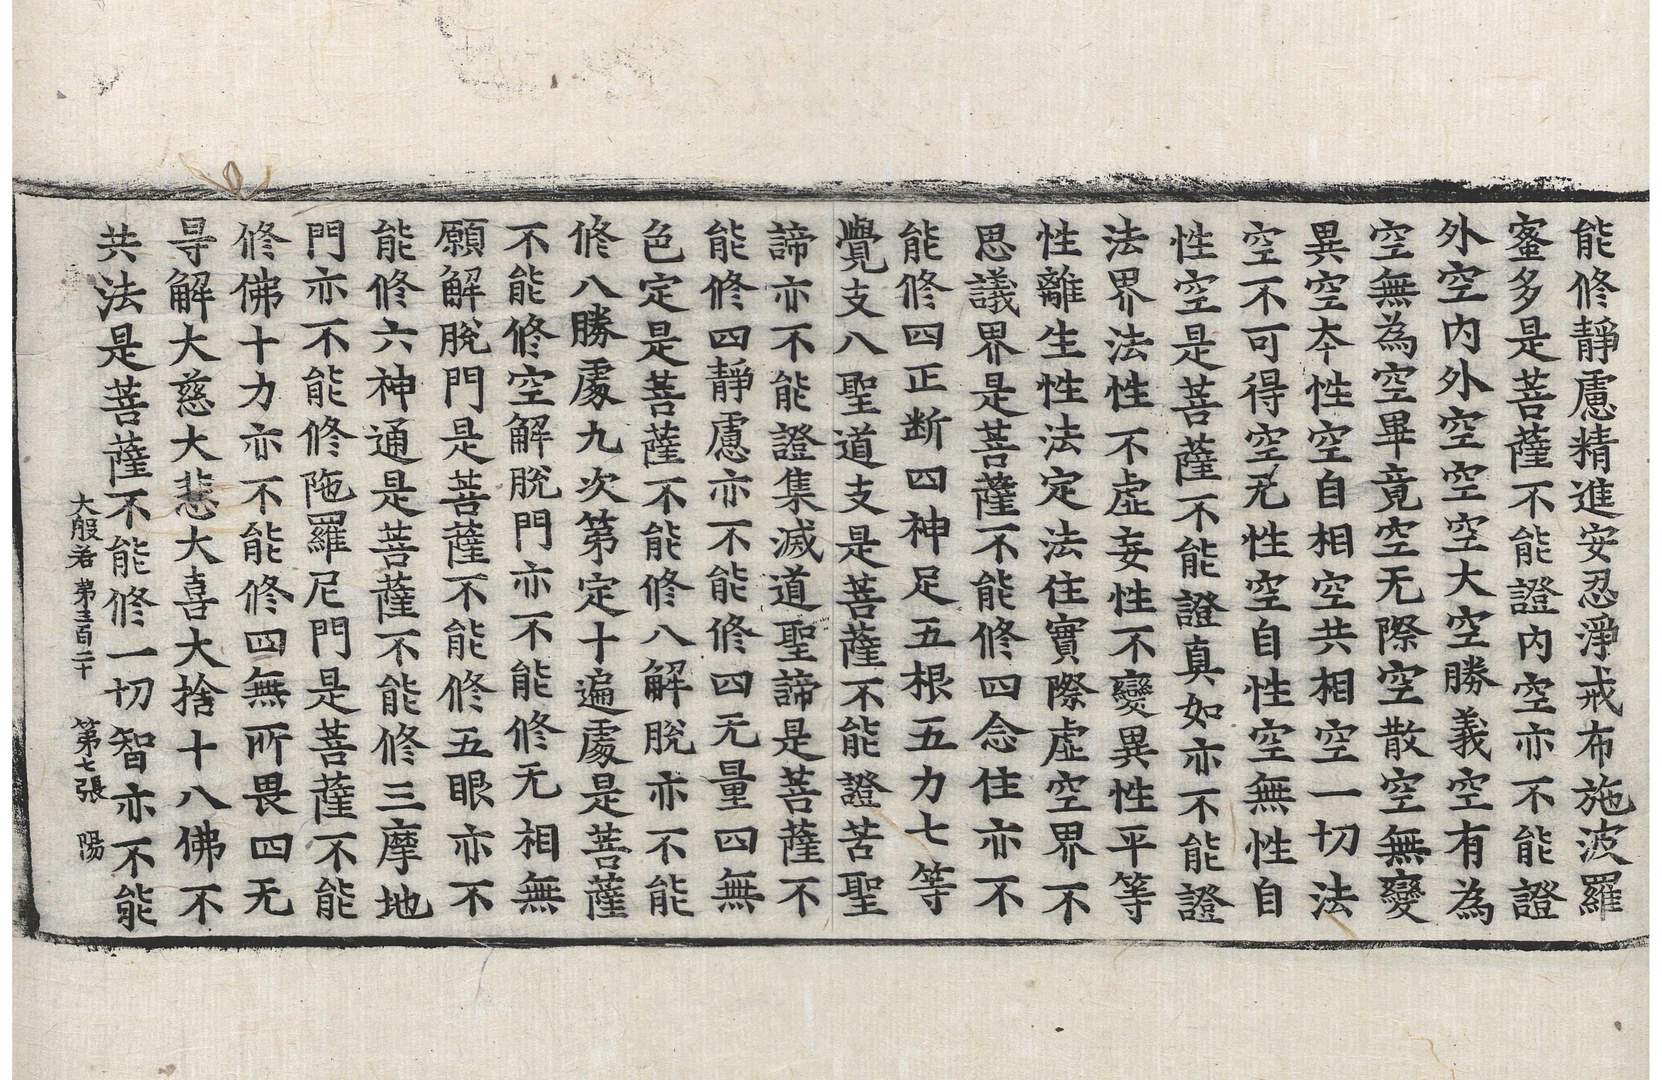 能修靜慮精進安忍淨戒布施波羅
蜜多是菩薩不能證內空亦不能證
外空內外空空空大空勝義空有為
空無為空畢竟空无際空散空無變
異空夲性空自相空共相空一切法
空不可得空无性空自性空無性自
性空是菩薩不能證真如亦不能證
法界法性不虛妄性不變異性平等
性離生性法定法住實際虛空界不
思議界是菩薩不能修四念住亦不
能修四正断四神足五根五力七等
覺支八聖道支是菩薩不能證苦聖
諦亦不能證集滅道聖諦是菩薩不
能修四靜慮亦不能修四无量四無
色定是菩薩不能修八解脫亦不能
修八勝處九次第定十遍處是菩薩
不能修空解脫門亦不能修无相無
願解脫門是菩薩不能修五眼亦不
能修六神通是菩薩不能修三摩地
門亦不能修陁羅尼門是菩薩不能
修佛十力亦不能修四無所畏四无
㝵解大慈大悲大喜大捨十八佛不
共法是菩薩不能修一切智亦不能
大般若第三百二十 第七張 陽